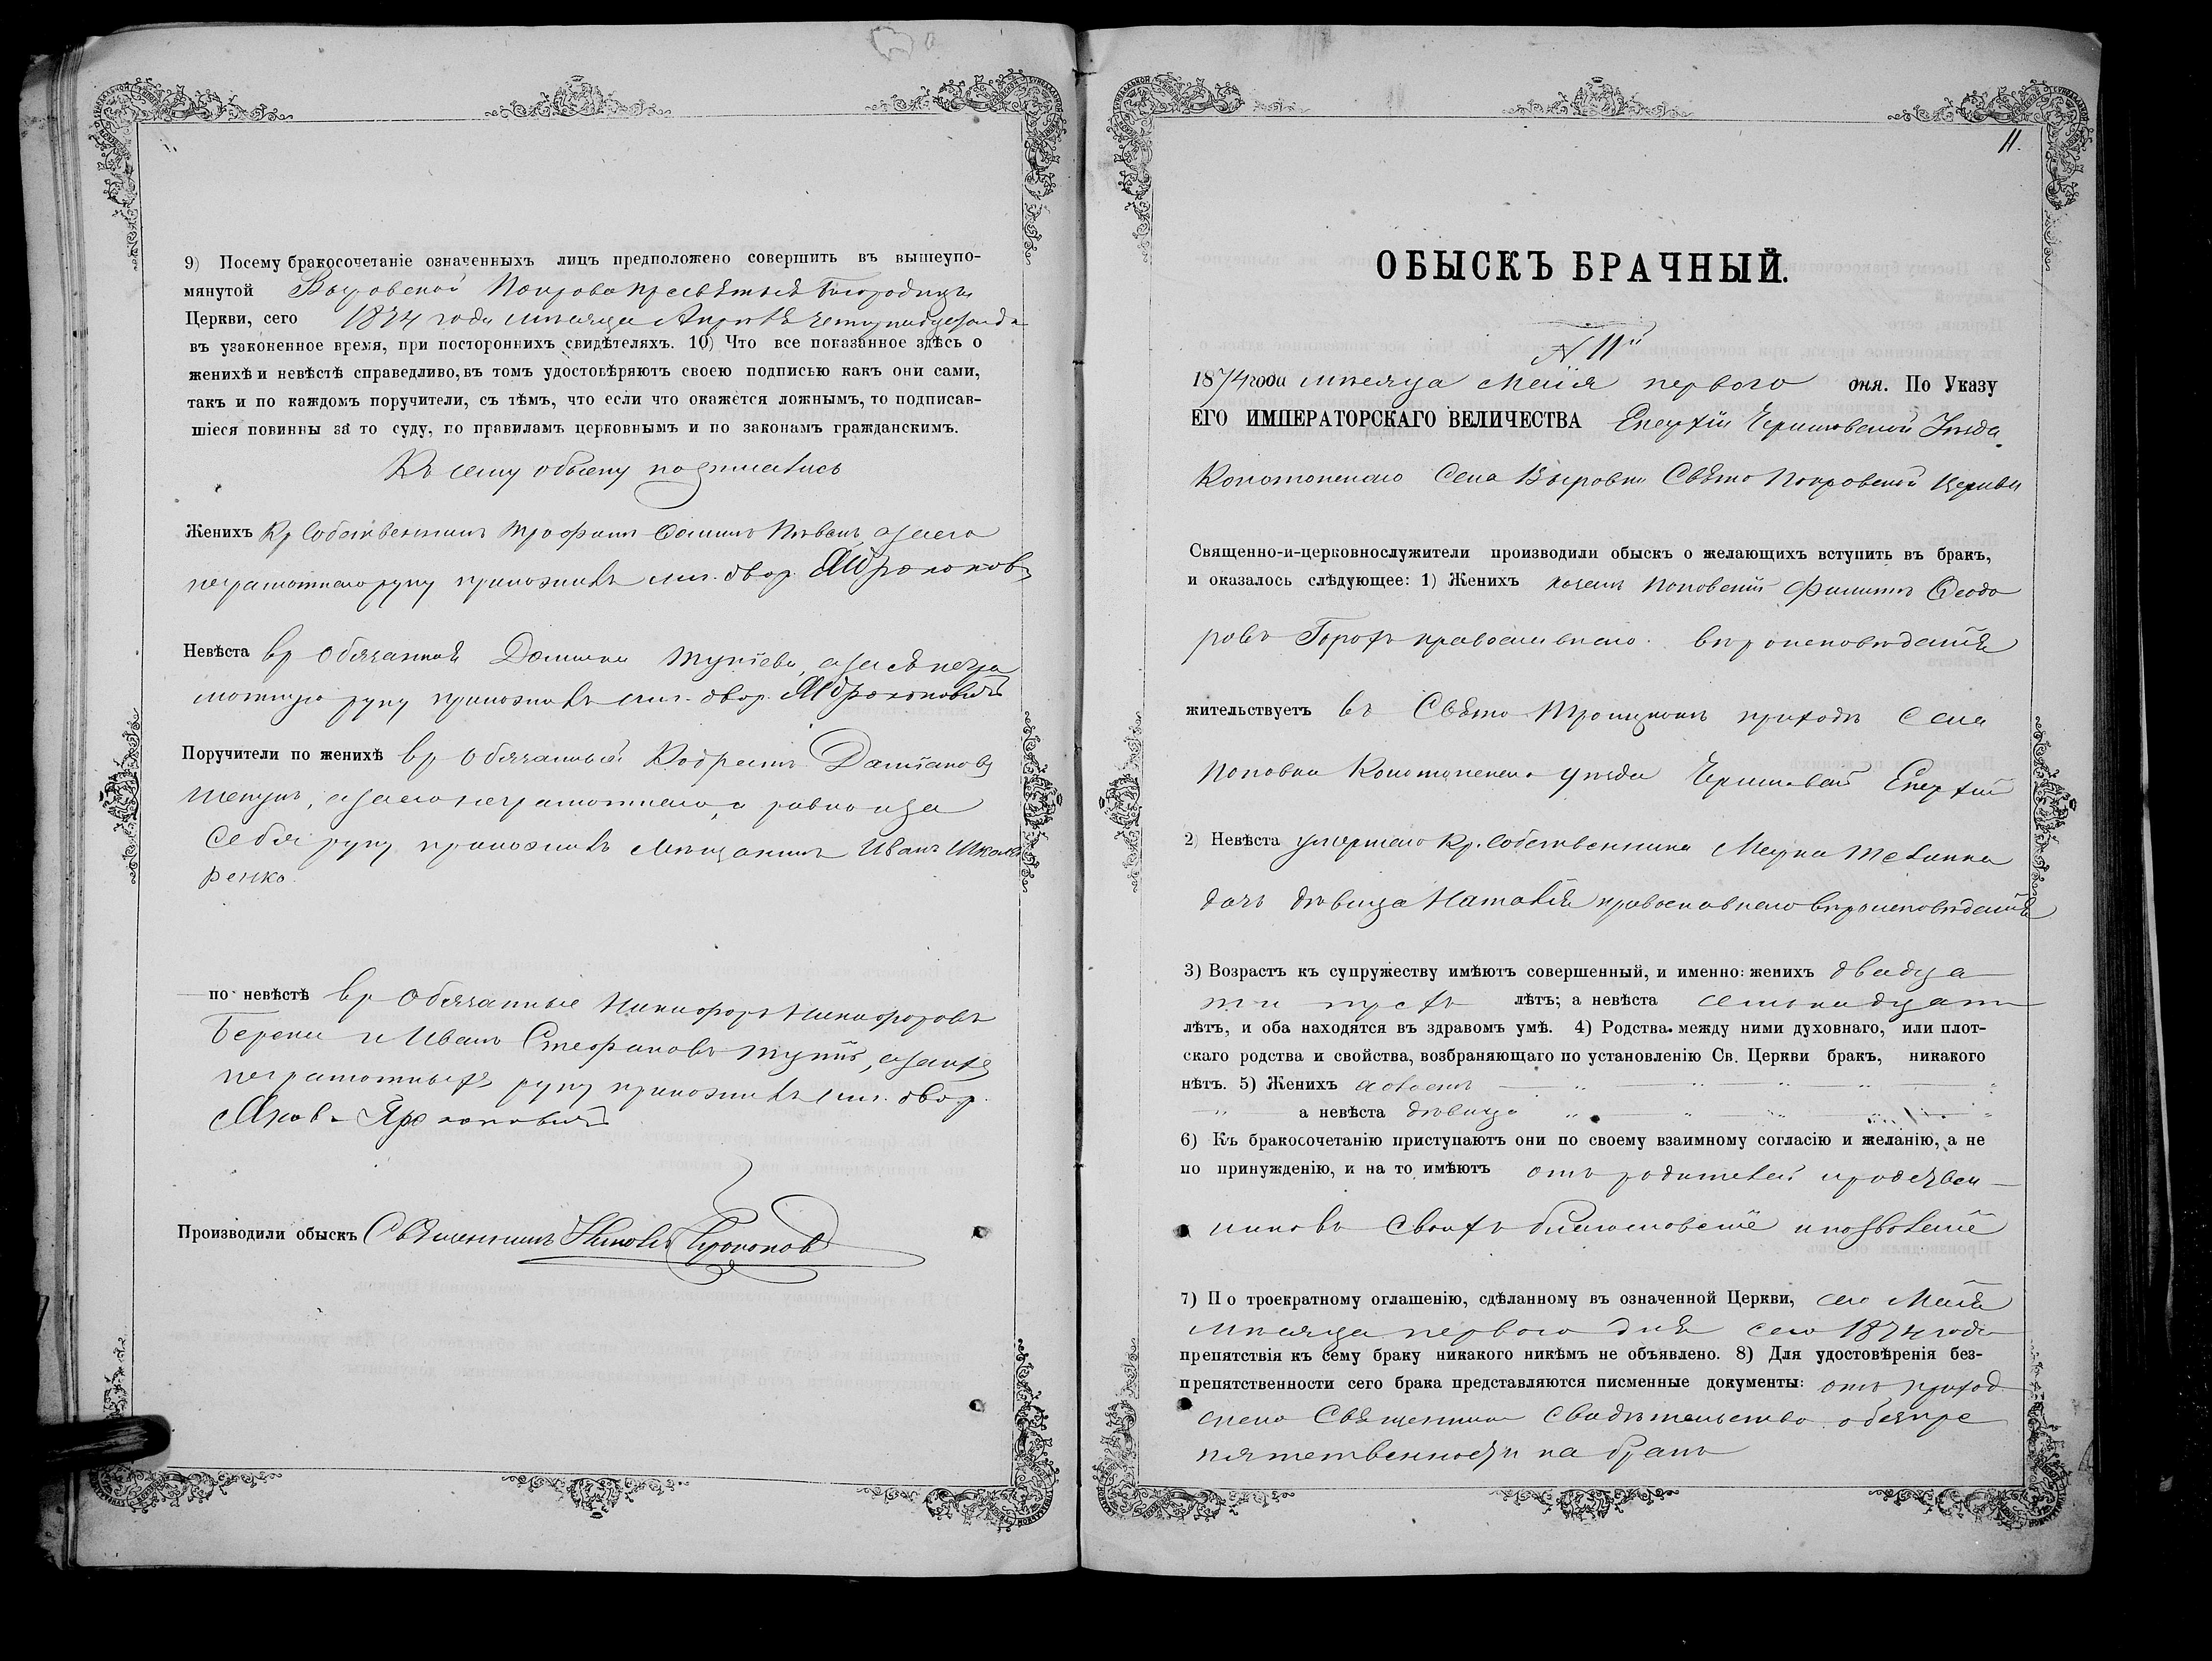 9) Посему бракосочетаніе означенныхъ лицъ предположено совершить въ вышеупо-
мянутой Выровской Покрова Пресвѣтыя Богородицы
Церкви, сего 1874 года мѣсяца Апрѣля
въ узаконенное время, при постороннихъ свидѣтеляхъ. 10) Что все показанное здѣсь о
женихѣ и невѣстѣ справедливо, въ томъ удостовѣряютъ своею подписью какъ они сами,
такъ и по каждомъ поручители, съ тѣмъ, что если что окажется ложнымъ, то подписав-
шіеся повинны за то суду, по правиламъ церковнымъ и по законамъ гражданскимъ.
Къ сему обыску подписались
Женихъ Кр собственникъ Трофимъ Фоминъ а за его
неграмотнаго руку приложилъ мѣл. двор.
Невѣста вр обязанная Домника а за сѣ негра
мотную руку приложилъ мѣл. двор.
Поручители по женихѣ вр обязанный Кодратъ Даміановъ
а за его неграмотнаго, а равно и за
себя руку приложилъ мѣщанинъ Иванъ Шкляе
ренко.
по невѣстѣ вр обязанные Никифоръ Никифоровъ
Берека и Иванъ Стефановъ а за ихъ
неграмотныхъ руку приложилъ мѣл. двор.
Яковъ
Производили обыскъ Священникъ
11.
ОБЫСКЪ БРАЧНЫЙ.
N 11й
1874 года мѣсяца Маія перваго дня. По Указу
ЕГО ИМПЕРАТОРСКАГО ВЕЛИЧЕСТВА Епархіи Черниговской Уѣзда
Конотопскаго Села Выровки Свѣто Покровской Церкви
Священно-и-церковнослужители производили обыскъ о желающихъ вступить въ бракъ,
и оказалось слѣдующее: 1) Женихъ козакъ Поповскій Филиппъ Ѳеодо
ровъ Горохъ православнаго вѣроисповѣданія
жительствуетъ въ Свѣто Троицкомъ приходѣ села
Поповки Конотопскаго уѣзда Черниговской Епархіи
2) Невѣста умершаго кр. собственника Марка
дочь дѣвица Наталія православнаго вѣроисповѣданія
3) Возрастъ къ супружеству имѣютъ совершенный, и именно: женихъ двадца
ти трехъ лѣтъ; а невѣста семьнадцати
лѣтъ, и оба находятся въ здравомъ умѣ. 4) Родства между ними духовнаго, или плот-
скаго родства и свойства, возбраняющаго по установленію Св. Церкви бракъ, никакого
нѣтъ. 5) Женихъ холостъ
а невѣста дѣвица
6) Къ бракосочетанію приступаютъ они по своему взаимному согласію и желанію, а не
по принужденію, и на то имѣютъ отъ родителей и родствен
никовъ своихъ благословеніе и позволеніе
7) По троекратному оглашенію, сдѣланному въ означенной Церкви, сего Маія
мѣсяца перваго дня сего 1874 года
препятствія къ сему браку никакого никѣмъ не объявлено. 8) Для удостовѣренія без-
препятственности сего брака представляются писменные документы: отъ приход
скаго Священника свидѣтельство о безпре
пятственности на бракъ